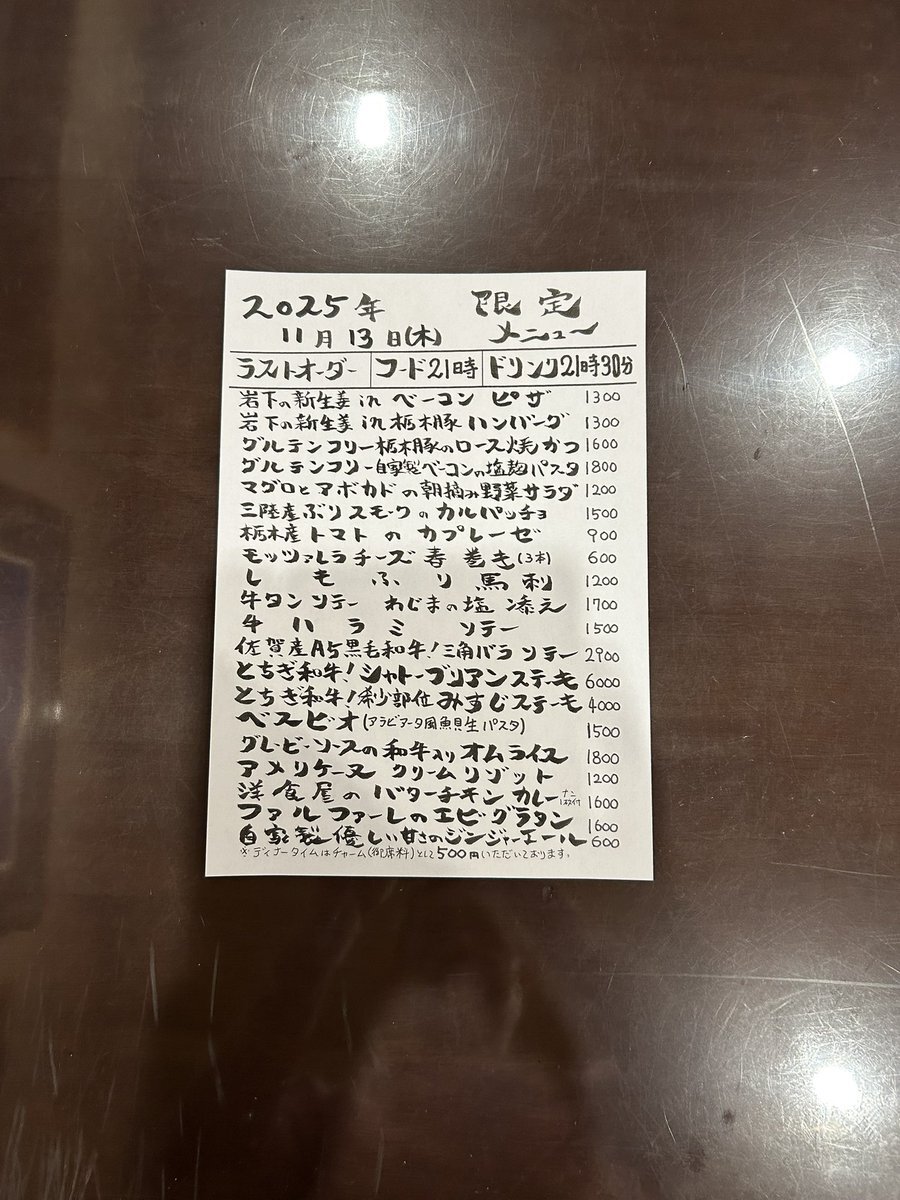 2025年 限定
11月13日(木) メニュー
ラストオーダー フード21時 ドリンク21時30分
岩下の新生姜in ベーコン ピザ 1300
岩下の新生姜in 栃木豚 ハンバーグ 1300
グルテンフリー栃木豚のロース焼かつ 1600
グルテンフリー自家製ベーコンの塩麹パスタ 1800
マグロとアボカドの朝摘み野菜サラダ 1200
三陸産ぶりスモークのカルパッチョ 1500
栃木産トマトのカプレーゼ 900
モッツァレラチーズ春巻き(3本) 600
しもふり馬刺 1200
牛タンソテー わじまの塩添え 1700
牛ハラミソテー 1500
佐賀産A5黒毛和牛!三角バラソテー 2900
とちぎ和牛!シャトーブリアンステーキ 6000
とちぎ和牛!希少部位みすじステーキ 4000
ベスビオ(アラビアータ風魚貝生パスタ) 1500
グレービーソースの和牛入りオムライス 1800
アメリケーヌクリームリゾット 1200
洋食屋のバターチキンカレーナン1枚付 1600
ファルファーレのエビグラタン 1600
自家製優しい甘さのジンジャーエール 600
※ディナータイムはチャーム(御席料)として500円いただいております。